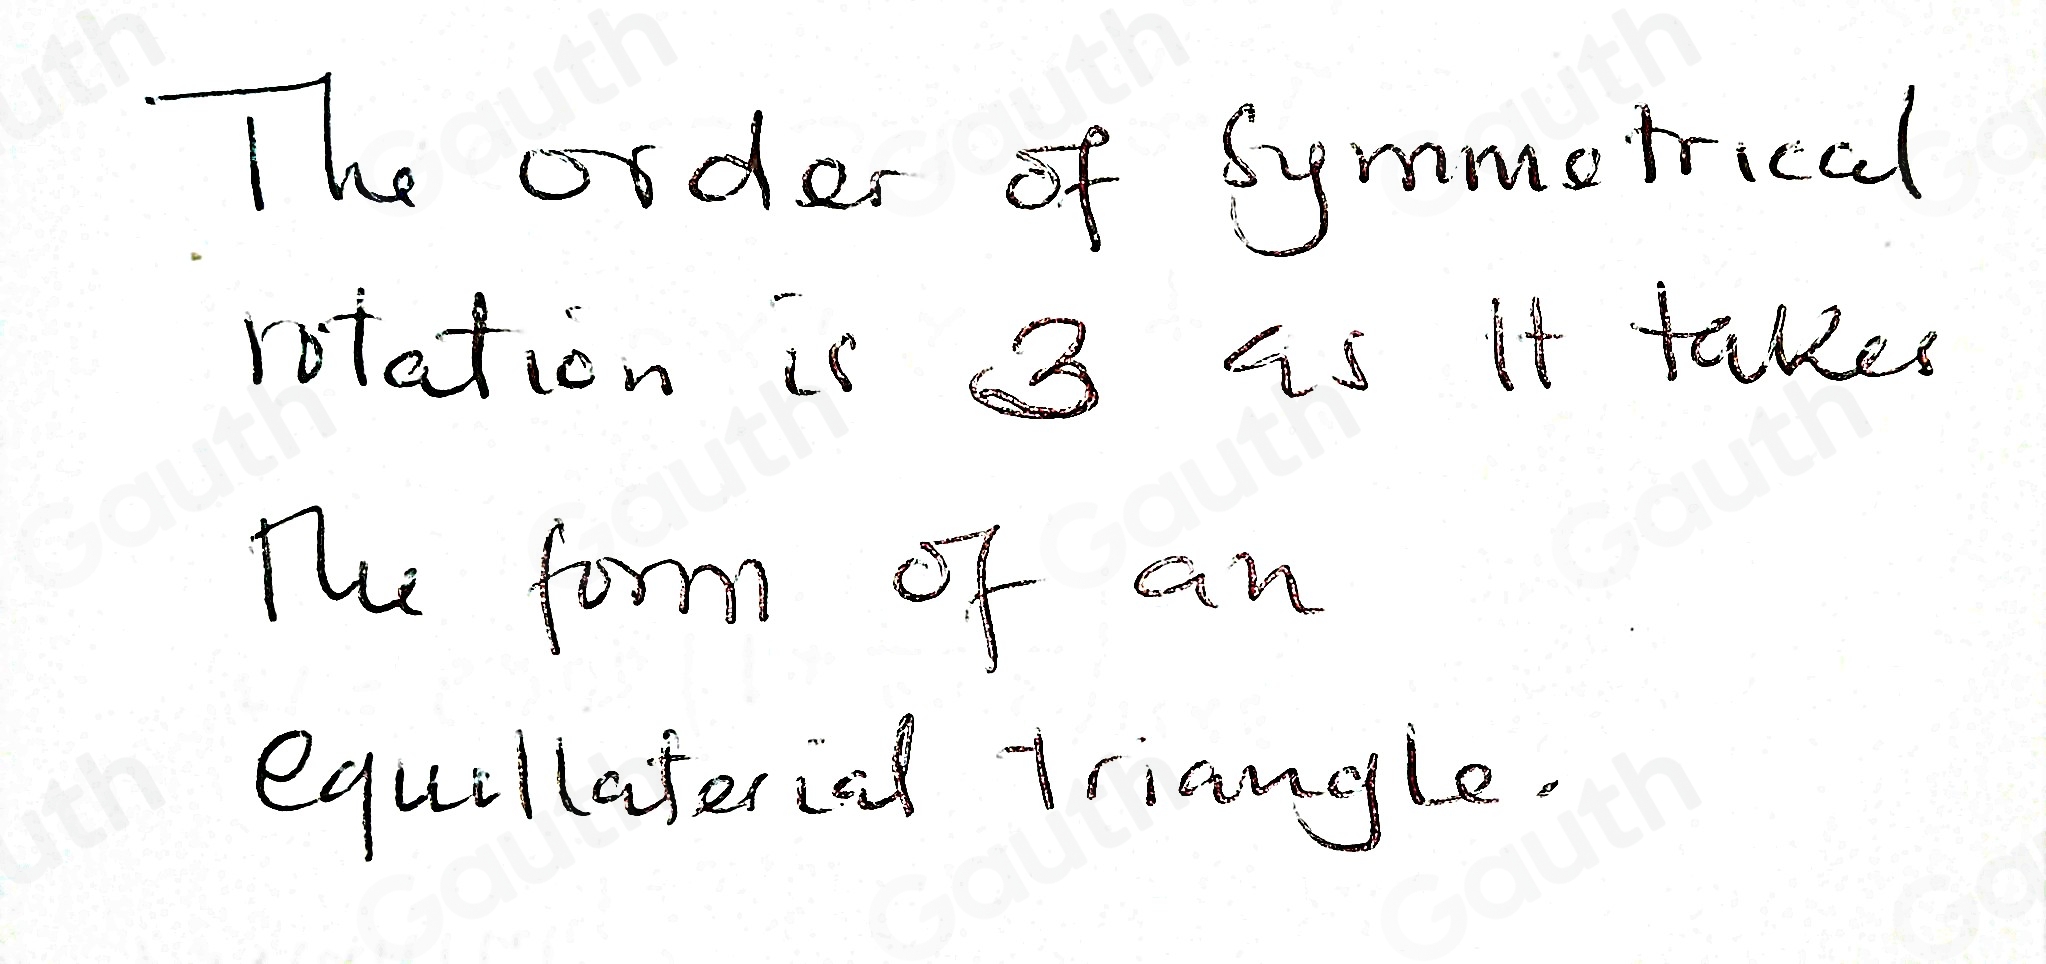 The order of symmetrical
rotation is 3 as it takes
the form of an
equillaterial triangle.